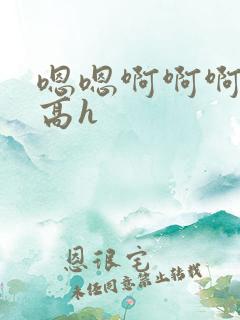 嗯嗯啊啊啊
高h
恩很宅
未经同意禁止转载